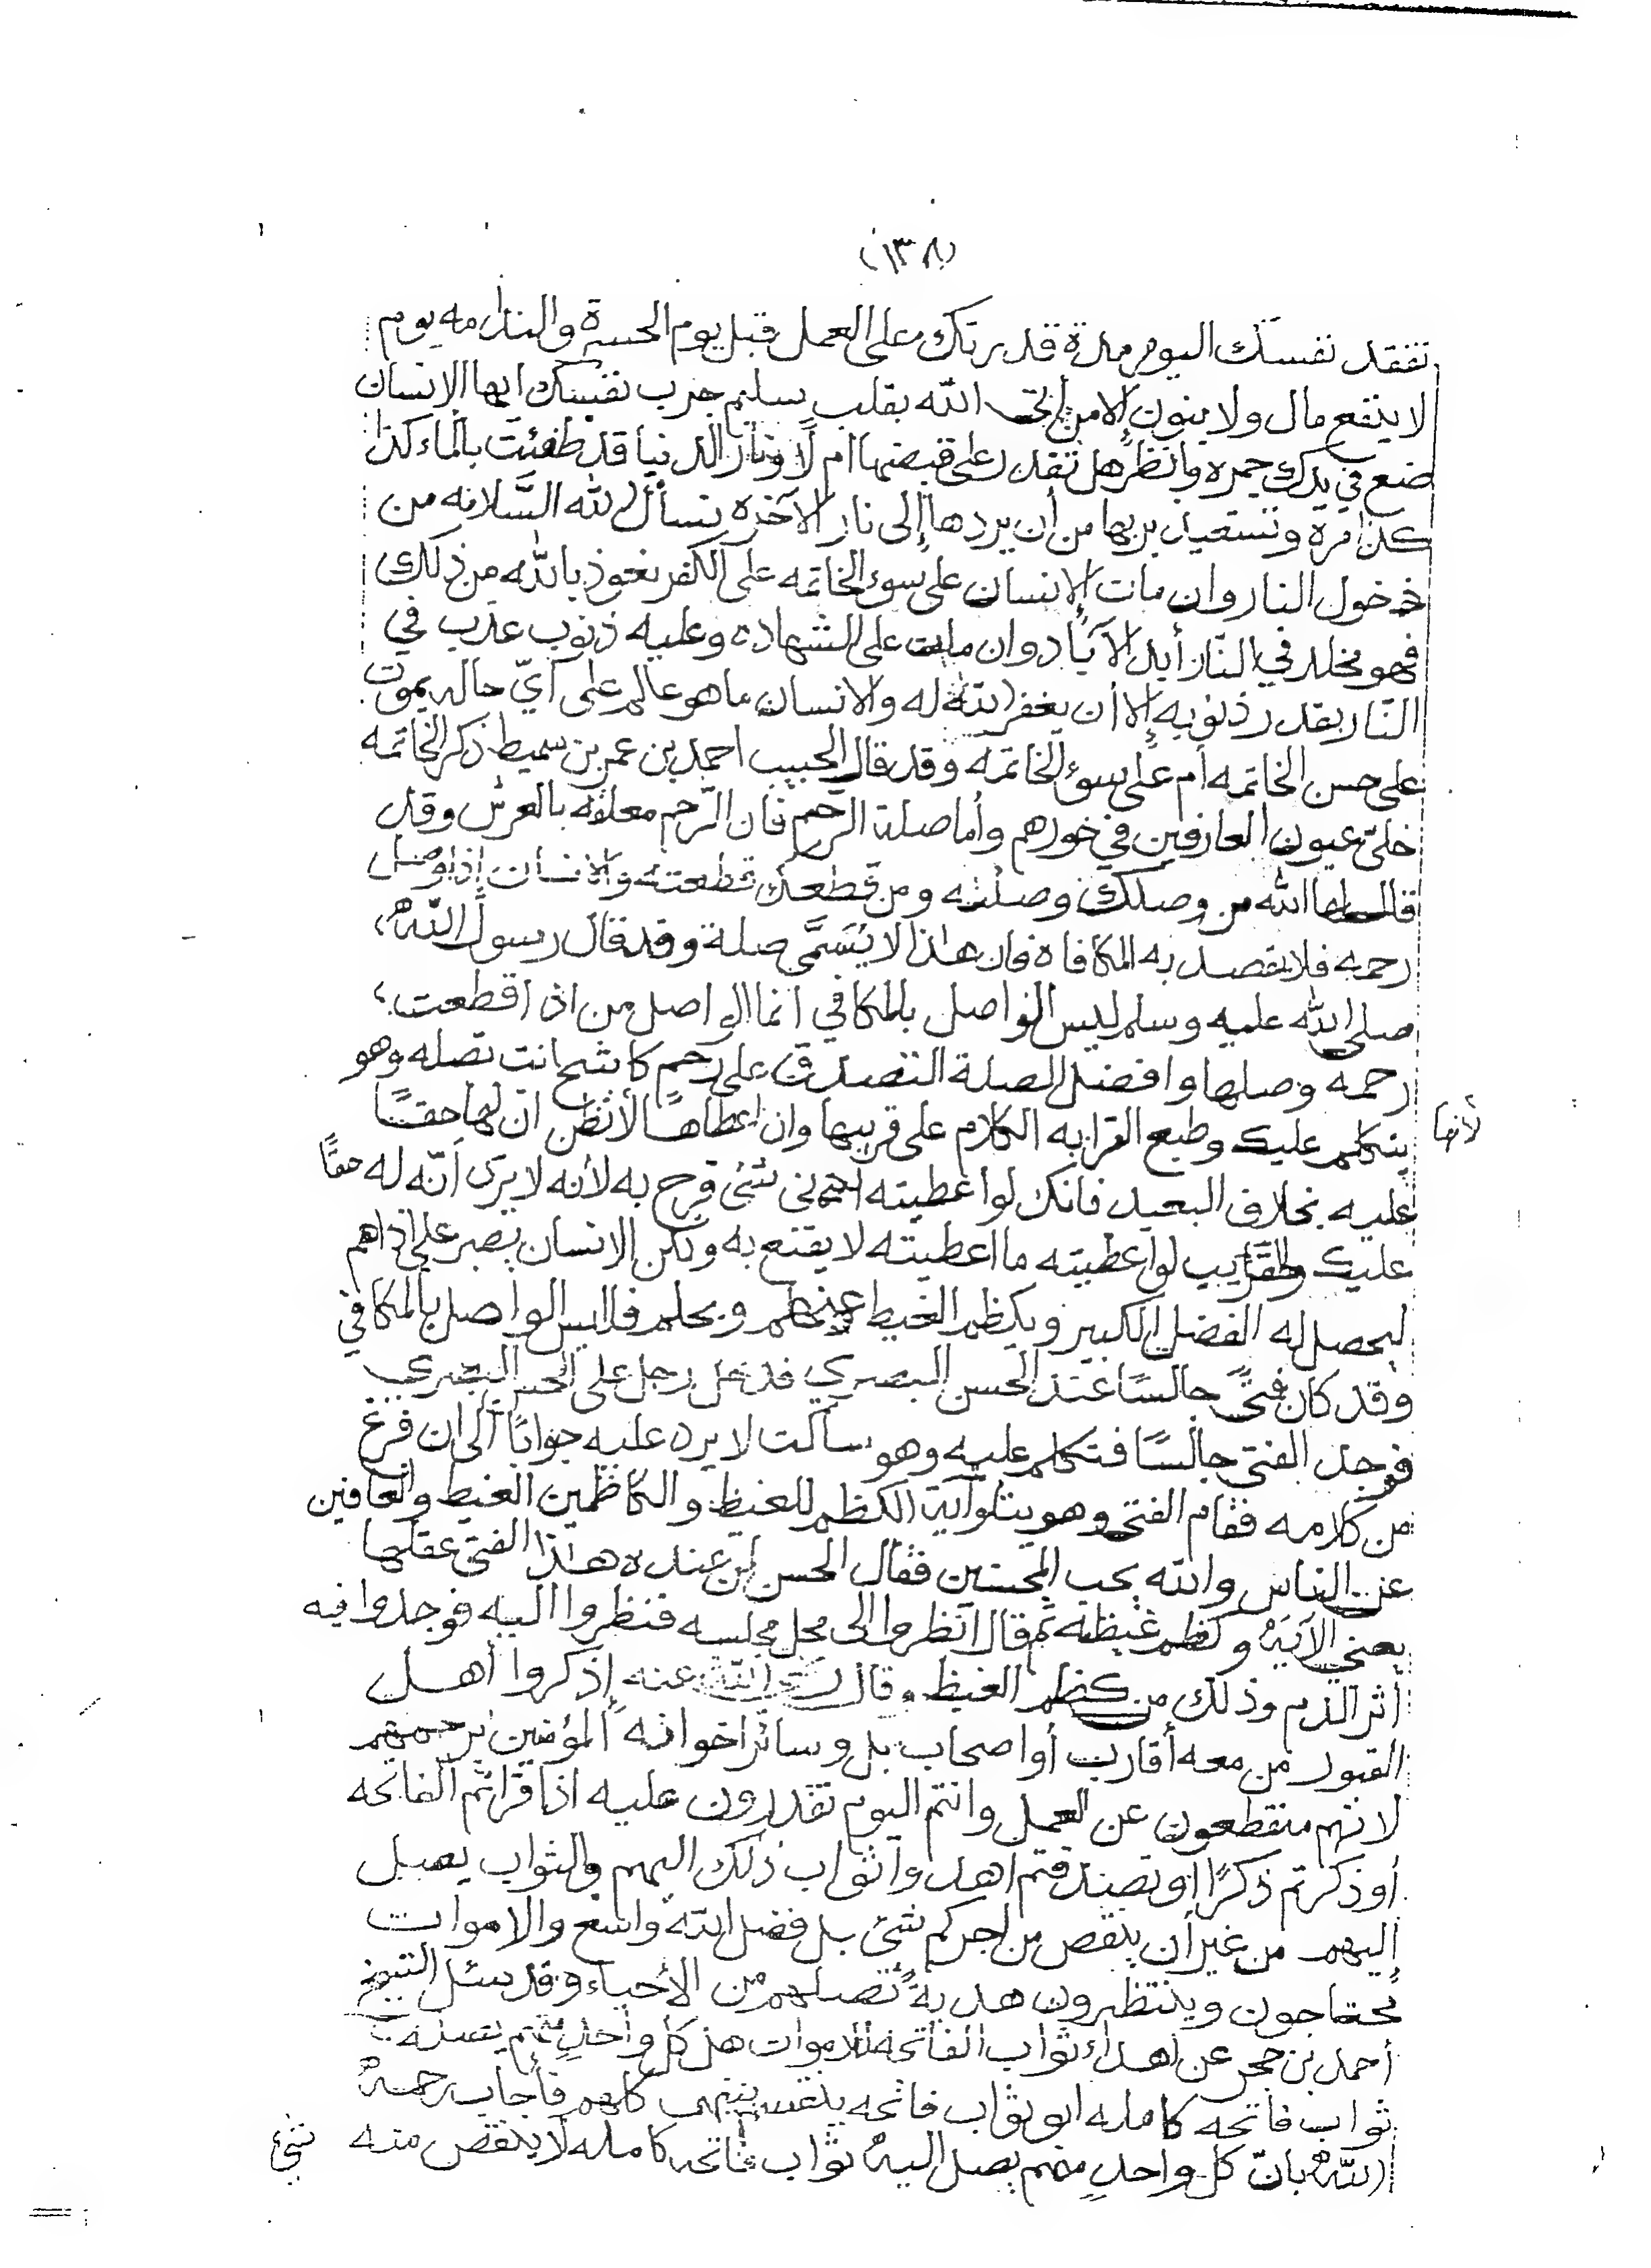 (١٣٨)
تفقد نفسك اليوم مدة قدرتك على العمل قبل يوم الحسرة والندامه يوم
لا ينفع مال ولا بنون إلا من أتى الله بقلب سليم جرب نفسك ايها الانسان
ضع في يدك جمره وانظر هل تقدر على قبضتها ام لا ونار الدنيا قد طفئت بالماء كذا
كذا مره وتستعيذ بربها من أن يردها إلى نار الآخره نسأل الله السَّلامه من
دخول النار وان مات الإنسان على سوء الخاتمه على الكفر نعوذ بالله من ذلك
فهو مخلد في النَّار أبد الآباد وان مات على الشهاده وعليه ذنوب عذب في
النَّار بقدر ذنوبه إلا أن يغفر الله له والانسان ما هو عالم على أيّ حاله يموت
على حسن الخاتمه أم على سوء الخاتمه وقد قال الحبيب احمد بن عمر بن سميط ذكر الخاتمه
خلّى عيون العارفين في خورهم وأما صلة الرَّحم فان الرَّحم معلقه بالعرش وقد
قال لها الله من وصلك وصلته ومن قطعك قطعته والانسان إذا وصل
رحمه فلا يقصد به المكافاه فان هذا لا يُسَمَّى صلة وقد قال رسول الله
صلى الله عليه وسلم ليس الواصل بالمكافي انما الواصل من اذا قطعت
رحمه وصلها وافضل الصلة التصدق على رحم كاشح انت تصله وهو
يتكلم عليك وطبع القرابه الكلام على قريبها وان اعطاها لأنها تظن انّ لها حقًّا
عليه بخلاف البعيد فانك لو اعطيته ادنى شئ فرح به لأنه لا يرى أنّه له حقًّا
عليك والقريب لو اعطيته ما اعطيته لا يقنع به ولكن الانسان يصبر على اذاهم
ليحصل له الفضل الكبير ويكظم الغيظ عنهم ويحلم فليس الواصل بالمكافي
وقد كان فتىً جالسًا عند الحسن البصري فدخل رجل على الحسن البصري
فوجد الفتى جالسًا فتكلم عليه وهو ساكت لا يرد عليه جوابًا الى ان فرغ
من كلامه فقام الفتى وهو يتلو آية الكظم للغيظ والكاظمين الغيظ والعافين
عن الناس والله يحب المحسنين فقال الحسن لمن عنده هذا الفتى عقلها
يعني الآيه وكظم غيظه ثم قال انظروا الى محل مجلسه فنظروا اليه فوجدوا فيه
أثر الدم وذلك من كظم الغيظ وقال رضي الله عنه إذكروا أهل
القبور من معه أقارب أو اصحاب بل وسائر اخوانه المؤمنين يرحمهم
لانهم منقطعون عن العمل وانتم اليوم تقدرون عليه اذا قرأتم الفاتحه
أو ذكرتم ذكرًا او تصدقتم اهدوا ثواب ذلك اليهم والثواب يصل
إليهم من غير أن ينقص من اجركم شئ بل فضل الله واسع والاموات
يحتاجون وينتظرون هديةً تصلهم من الأحياء وقد سئل الشيخ
أحمد بن حجر عن اهداء ثواب الفاتحه للاموات هل كل واحدٍ منهم يصله
ثواب فاتحه كامله او ثواب فاتحه ينقسم بينهم كلهم فأجاب رحمه
الله بانّ كل واحدٍ منهم يصل اليه ثواب فاتحه كامله لا ينقص منه شئ